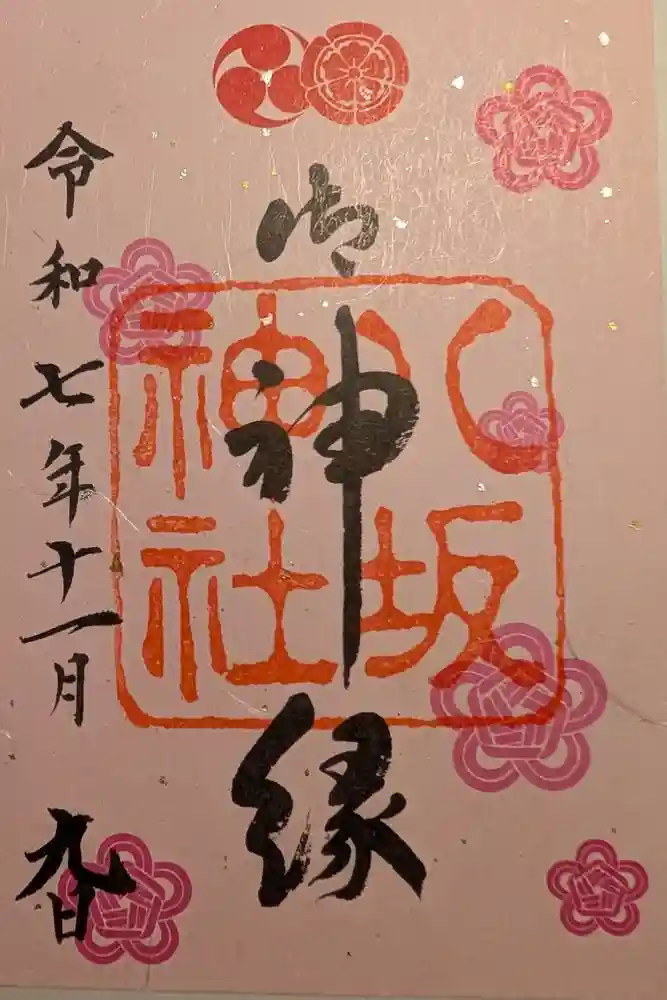 御神縁
八坂
神社
令和七年十一月九日